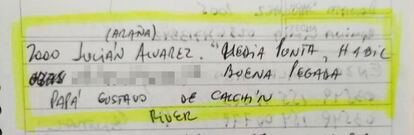 (ARAÑA)
2000 JULIÁN ALVAREZ. "MEDIA PUNTA, HABIL
BUENA PEGADA
PAPÁ GUSTAVO DE CALCHÍN
RIVER